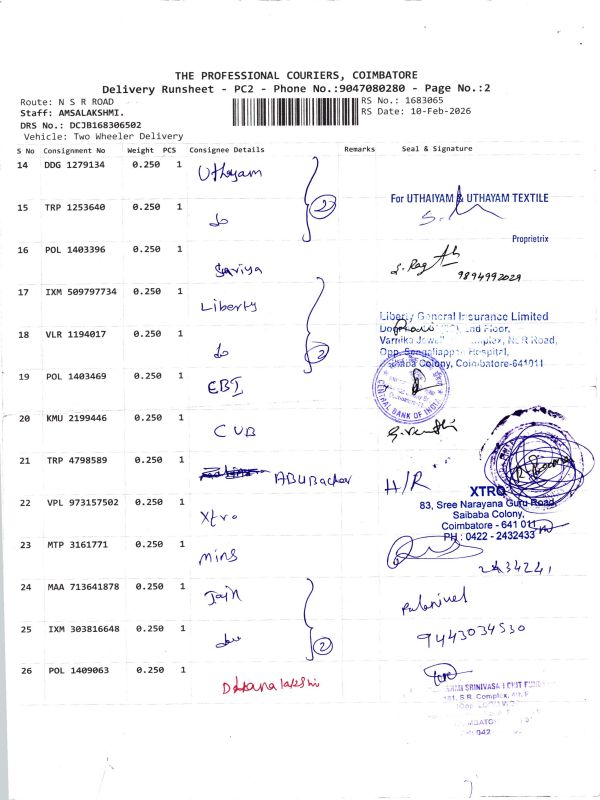 THE PROFESSIONAL COURIERS, COIMBATORE
Delivery Runsheet - PC2 - Phone No.:9047080280 - Page No.:2
Route: N S R ROAD
RS No.: 1683065
Staff: AMSALAKSHMI.
RS Date: 10-Feb-2026
DRS No.: DCJB168306502
Vehicle: Two Wheeler Delivery
S No Consignment No Weight PCS Consignee Details Remarks Seal & Signature
14 DDG 1279134 0.250 1 Uthayam
2
For UTHAIYAM & UTHAYAM TEXTILE
Proprietrix
15 TRP 1253640 0.250 1 do
16 POL 1403396 0.250 1 Sariya
9894992029
17 IXM 509797734 0.250 1 Liberty
2
Liberty General Insurance Limited
2nd Floor,
Varnika Jewell Complex, N.S.R Road,
Opp. Sengaliappan Hospital,
Saibaba Colony, Coimbatore-641011
18 VLR 1194017 0.250 1 do
19 POL 1403469 0.250 1 EBI
CENTRAL BANK OF INDIA
20 KMU 2199446 0.250 1 CUB
21 TRP 4798589 0.250 1 ABUBacker
H/R
22 VPL 973157502 0.250 1 Xtro
XTRO
83, Sree Narayana Guru Road,
Saibaba Colony,
Coimbatore - 641 011
PH : 0422 - 2432433
23 MTP 3161771 0.250 1 mins
2434241
24 MAA 713641878 0.250 1 Jain
2
Palanivel
9443034530
25 IXM 303816648 0.250 1 do
26 POL 1409063 0.250 1 Dhanalakshmi
SRINIVASA CHIT FUND
S.R. Complex,